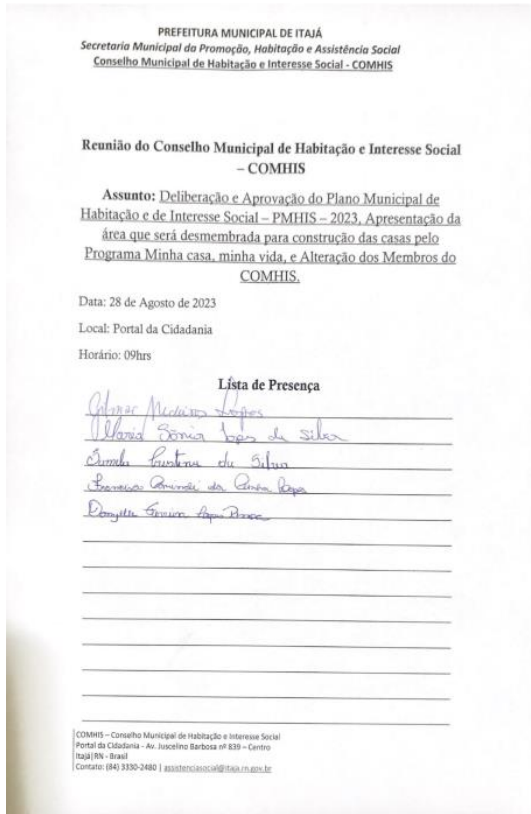 PREFEITURA MUNICIPAL DE ITAJÁ
Secretaria Municipal da Promoção, Habitação e Assistência Social
Conselho Municipal de Habitação e Interesse Social - COMHIS
Reunião do Conselho Municipal de Habitação e Interesse Social
– COMHIS
Assunto: Deliberação e Aprovação do Plano Municipal de
Habitação e de Interesse Social – PMHIS – 2023, Apresentação da
área que será desmembrada para construção das casas pelo
Programa Minha casa, minha vida, e Alteração dos Membros do
COMHIS.
Data: 28 de Agosto de 2023
Local: Portal da Cidadania
Horário: 09hrs
Lista de Presença
Gilmar Medeiros Lopes
Maria Sônia Lopes da Silva
da Silva
Francisca da Cunha Lopes
Lopes
COMHIS – Conselho Municipal de Habitação e Interesse Social
Portal da Cidadania - Av. Juscelino Barbosa nº 839 – Centro
Itajá|RN - Brasil
Contato: (84) 3330-2480 | assistenciasocial@itaja.rn.gov.br